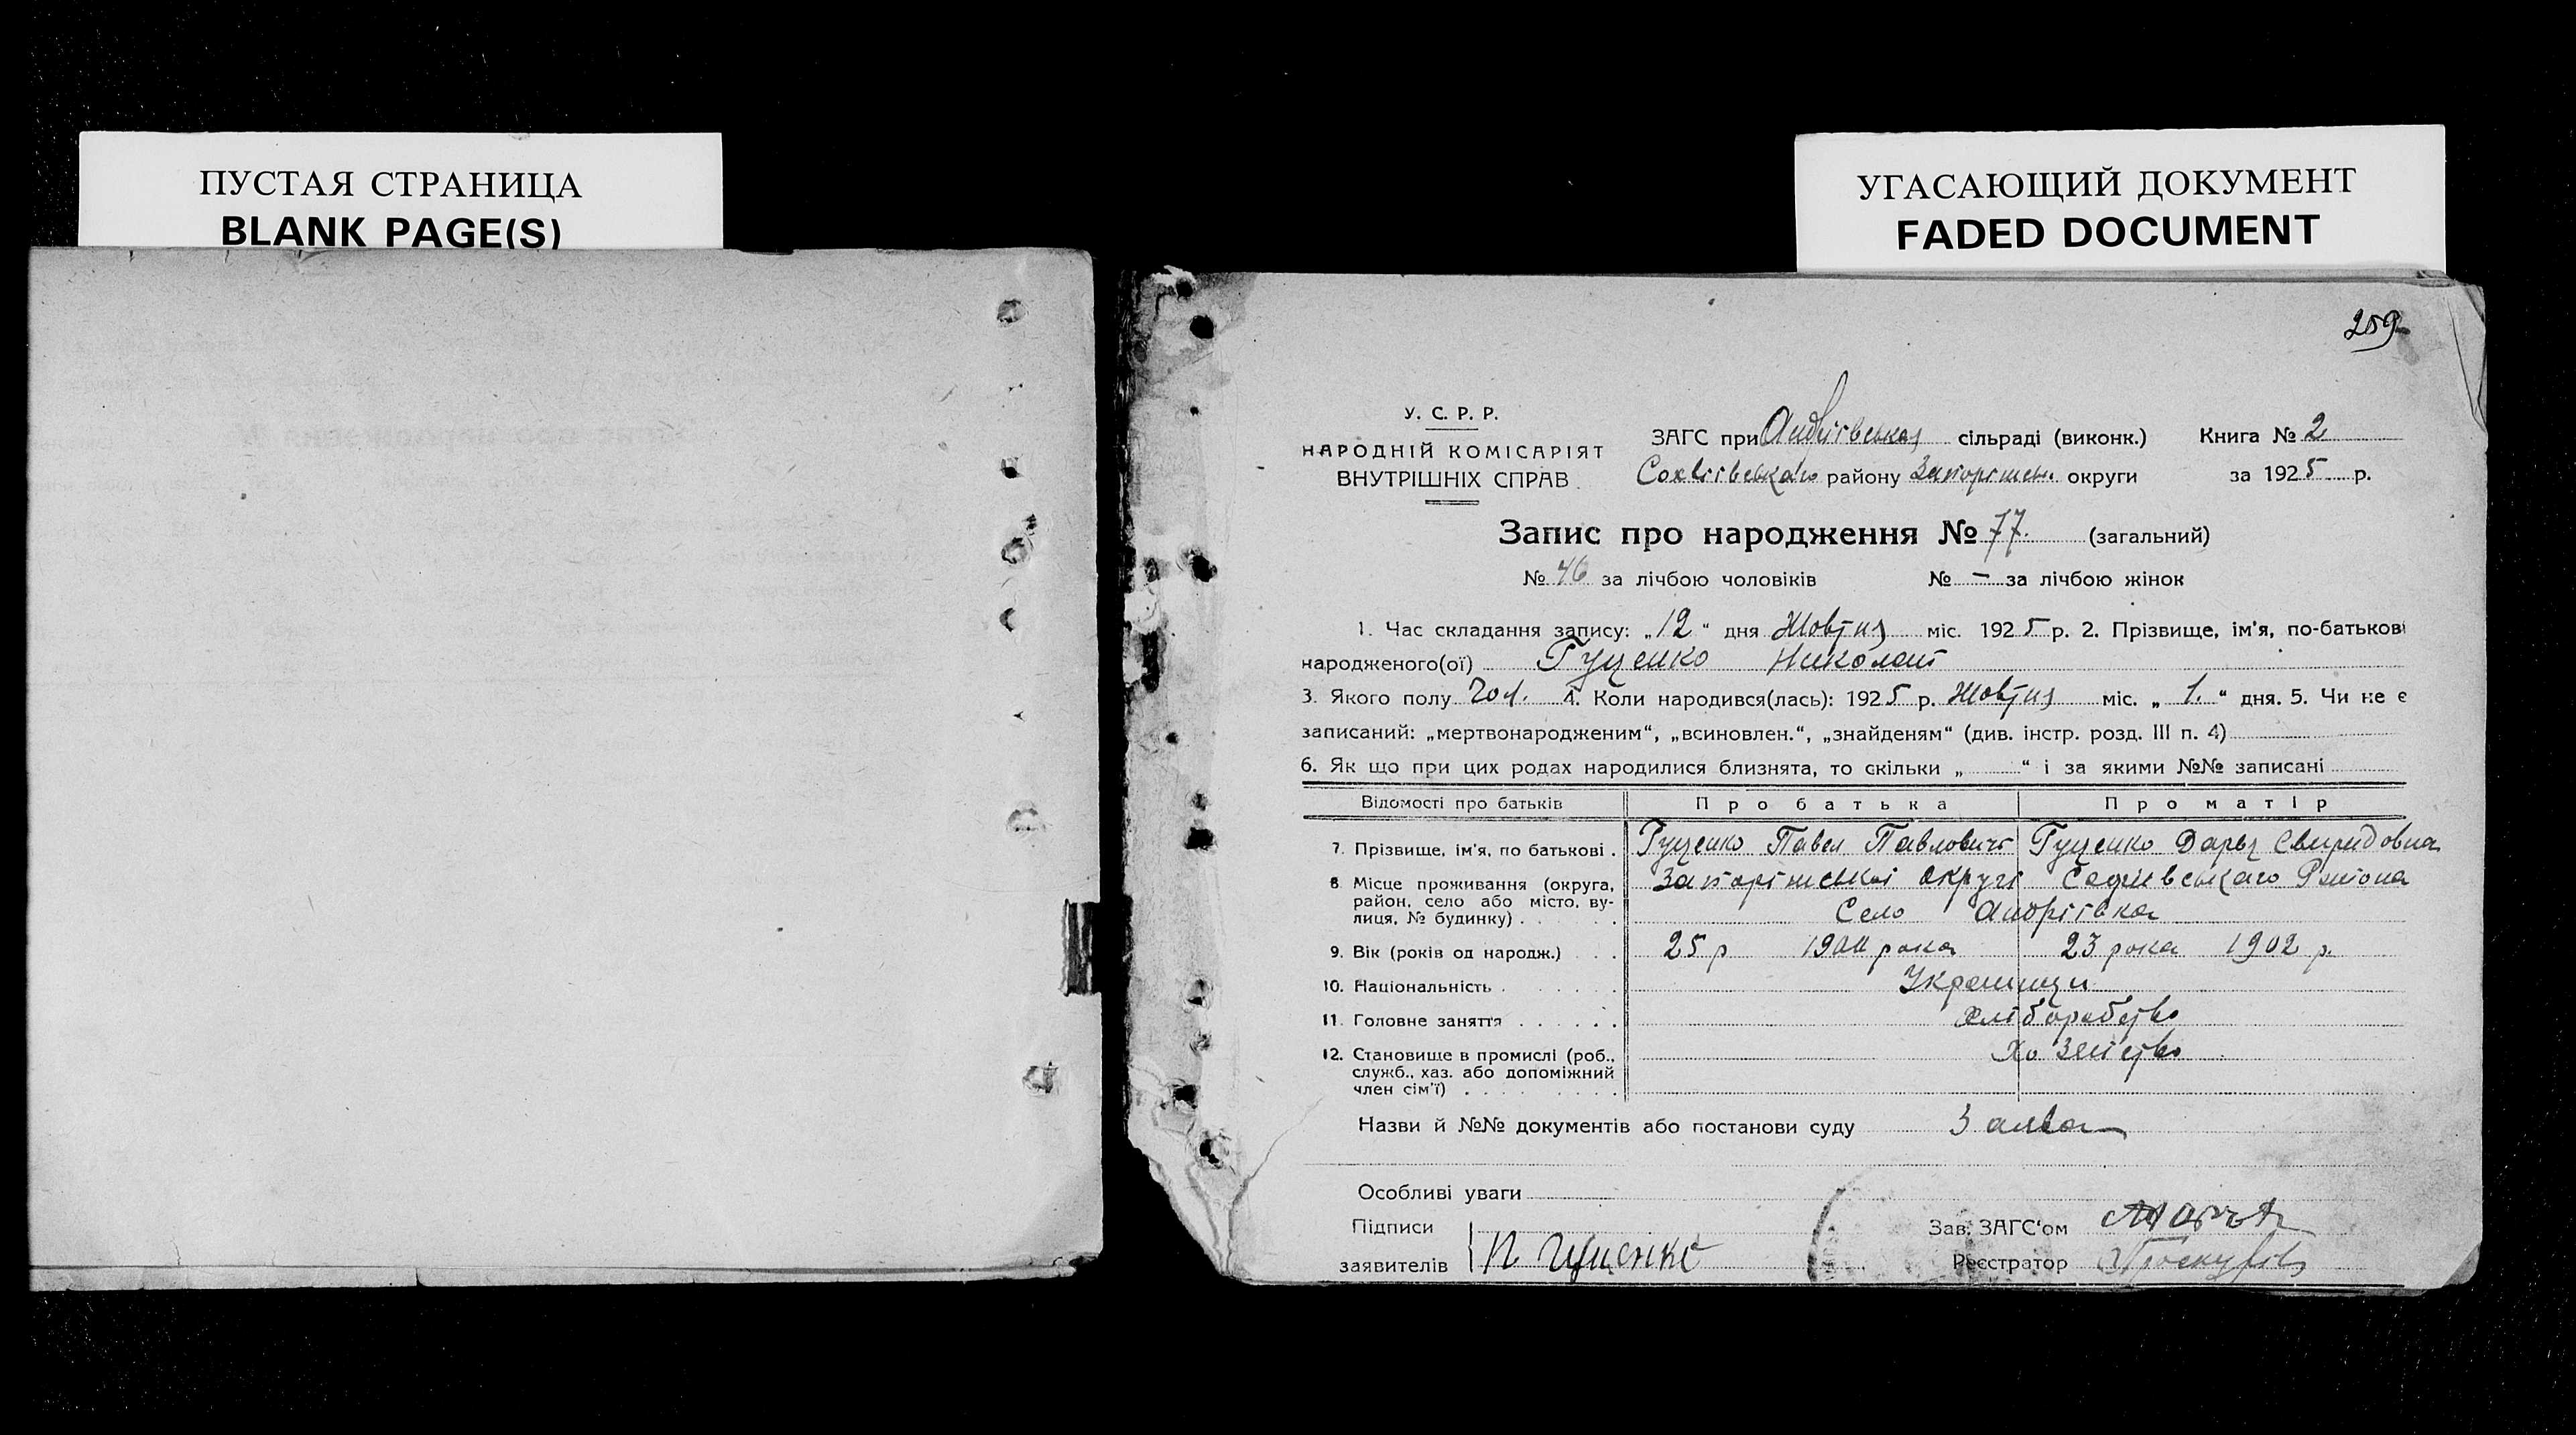 ПУСТАЯ СТРАНИЦА
BLANK PAGE(S)
УГАСАЮЩИЙ ДОКУМЕНТ
FADED DOCUMENT
259
У. С. Р. Р.
НАРОДНІЙ КОМІСАРІЯТ
ВНУТРІШНІХ СПРАВ
ЗАГС при Андріївській сільраді (виконк.) Книга № 2
району Запоріжськ. округи за 1925 р.
Запис про народження № 77. (загальний)
№ 46 за лічбою чоловіків № — за лічбою жінок
1. Час складання запису: „12“ дня Жовтня міс. 1925 р. 2. Прізвище, ім'я, по-батькові
народженого(ої) Гуценко Николай
3. Якого полу чол. 4. Коли народився(лась): 1925 р. Жовтня міс. „1.“ дня. 5. Чи не є
записаний: „мертвонародженим“, „всиновлен.“, „знайденям“ (див. інстр. розд. III п. 4)
6. Як що при цих родах народилися близнята, то скільки „ “ і за якими №№ записані
Відомості про батьків Про батька Про матір
7. Прізвище, ім'я, по батькові . Гуценко Павел Павлович Гуценко Дарья Свиридовна
8. Місце проживання (округа, район, село або місто, ву-
лиця, № будинку) . Запоріжської округи Района
Село Андріївка
9. Вік (років од народж.) . . . 25 р 1900 рока 23 рока 1902 р.
10. Національність . Украинци
11. Головне заняття . хліборобство
12. Становище в промислі (роб., Хозяйство
служб., хаз. або допоміжний
член сім'ї) .
Назви й №№ документів або постанови суду Заява
Особливі уваги
Підписи
заявителів П Гуценко
Зав. ЗАГС'ом
Реєстратор